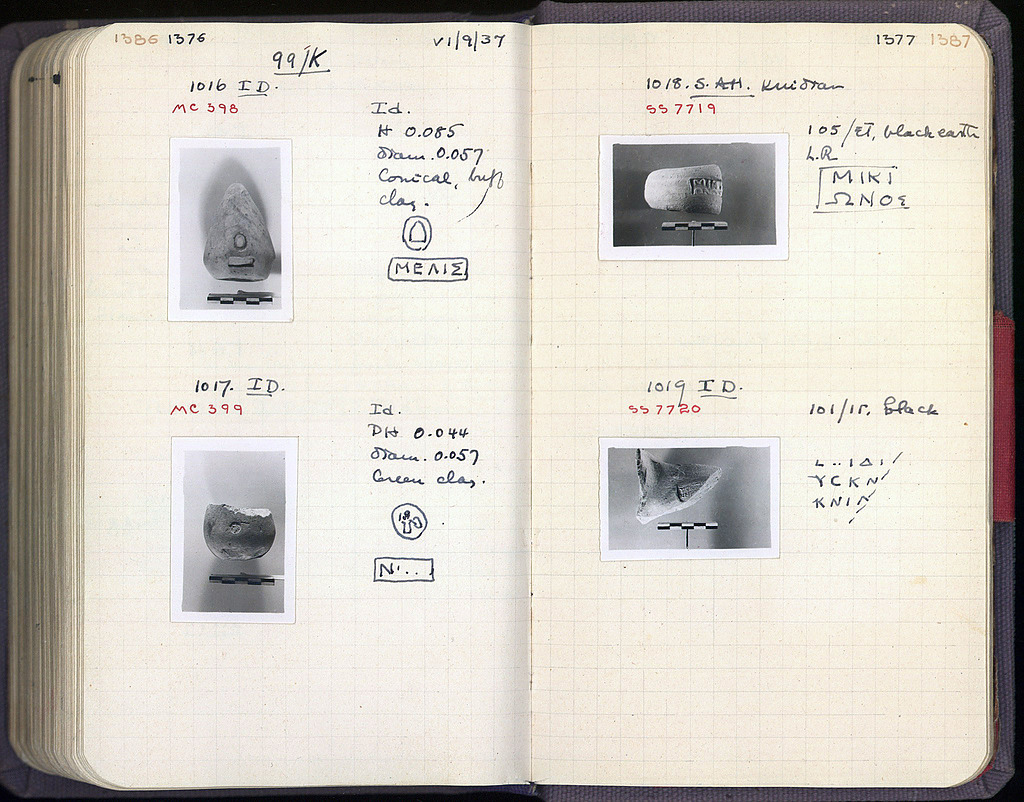 1386 1376
VI/9/37
99/ΙΚ
1016 ID.
MC 398
Id.
H 0.085
diam. 0.057
Conical, buff
clay.
ΜΕΛΙΣ
1017. ID.
MC 399
Id.
PH 0.044
diam. 0.057
Green clay.
N...
1377 1387
1018. S.A.H. Knidian
SS 7719
105/ΣΤ, black earth
L.R
ΜΙΚΙ
ΩΝΟΣ
1019 ID.
SS 7720
101/ΙΓ, black
L..ΙΔΙ/
ΥCΚΝ/
ΚΝΙΝ/